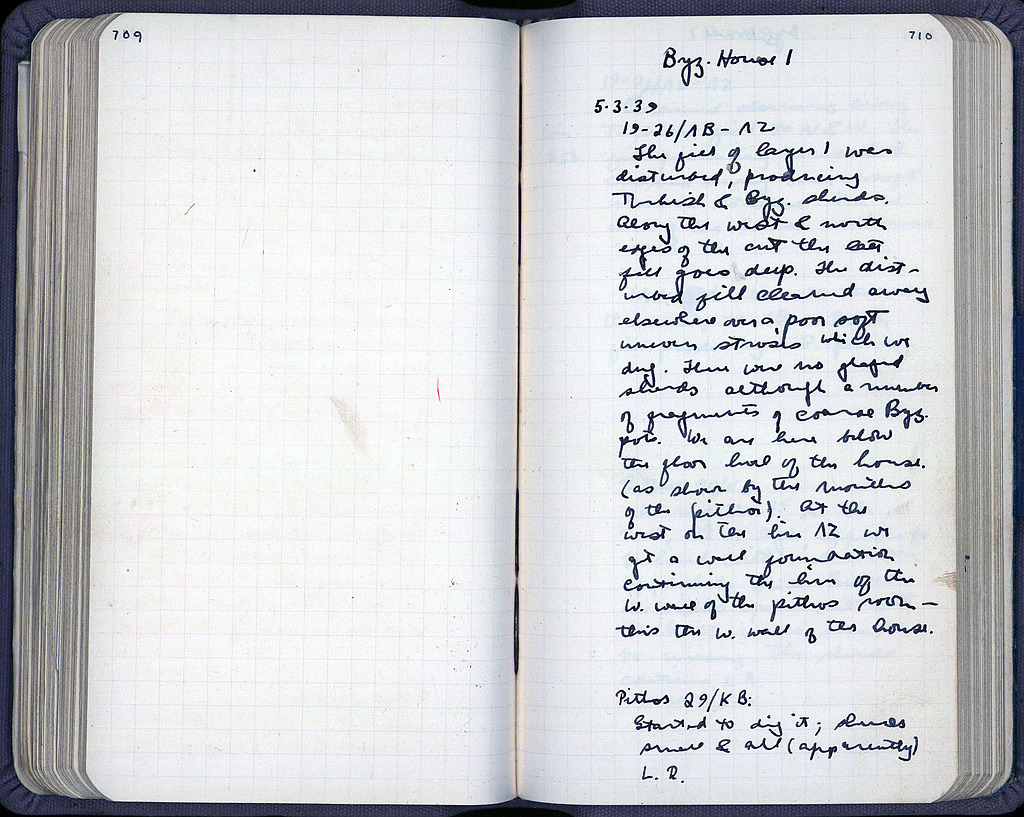 709
710
Byz. House 1
5.3.39
19-26/ΛB-ΛZ
The fill of layer 1 was
disturbed, producing
Turkish & Byz. sherds.
Along the west & north
edges of the cut the late
fill goes deep. The dist-
urbed fill cleared away
elsewhere over a poor soft
uneven strosis which we
dug. There were no glazed
sherds although a number
of fragments of coarse Byz.
pots. We are here below
the floor level of the house.
(as shown by the mouths
of the pithoi). At the
west on the line ΛZ we
get a wall foundation
continuing the line of the
W. wall of the pithos room –
this the W. wall of the house.
Pithos 29/KB:
Started to dig it; sherds
small & all (apparently)
L. R.